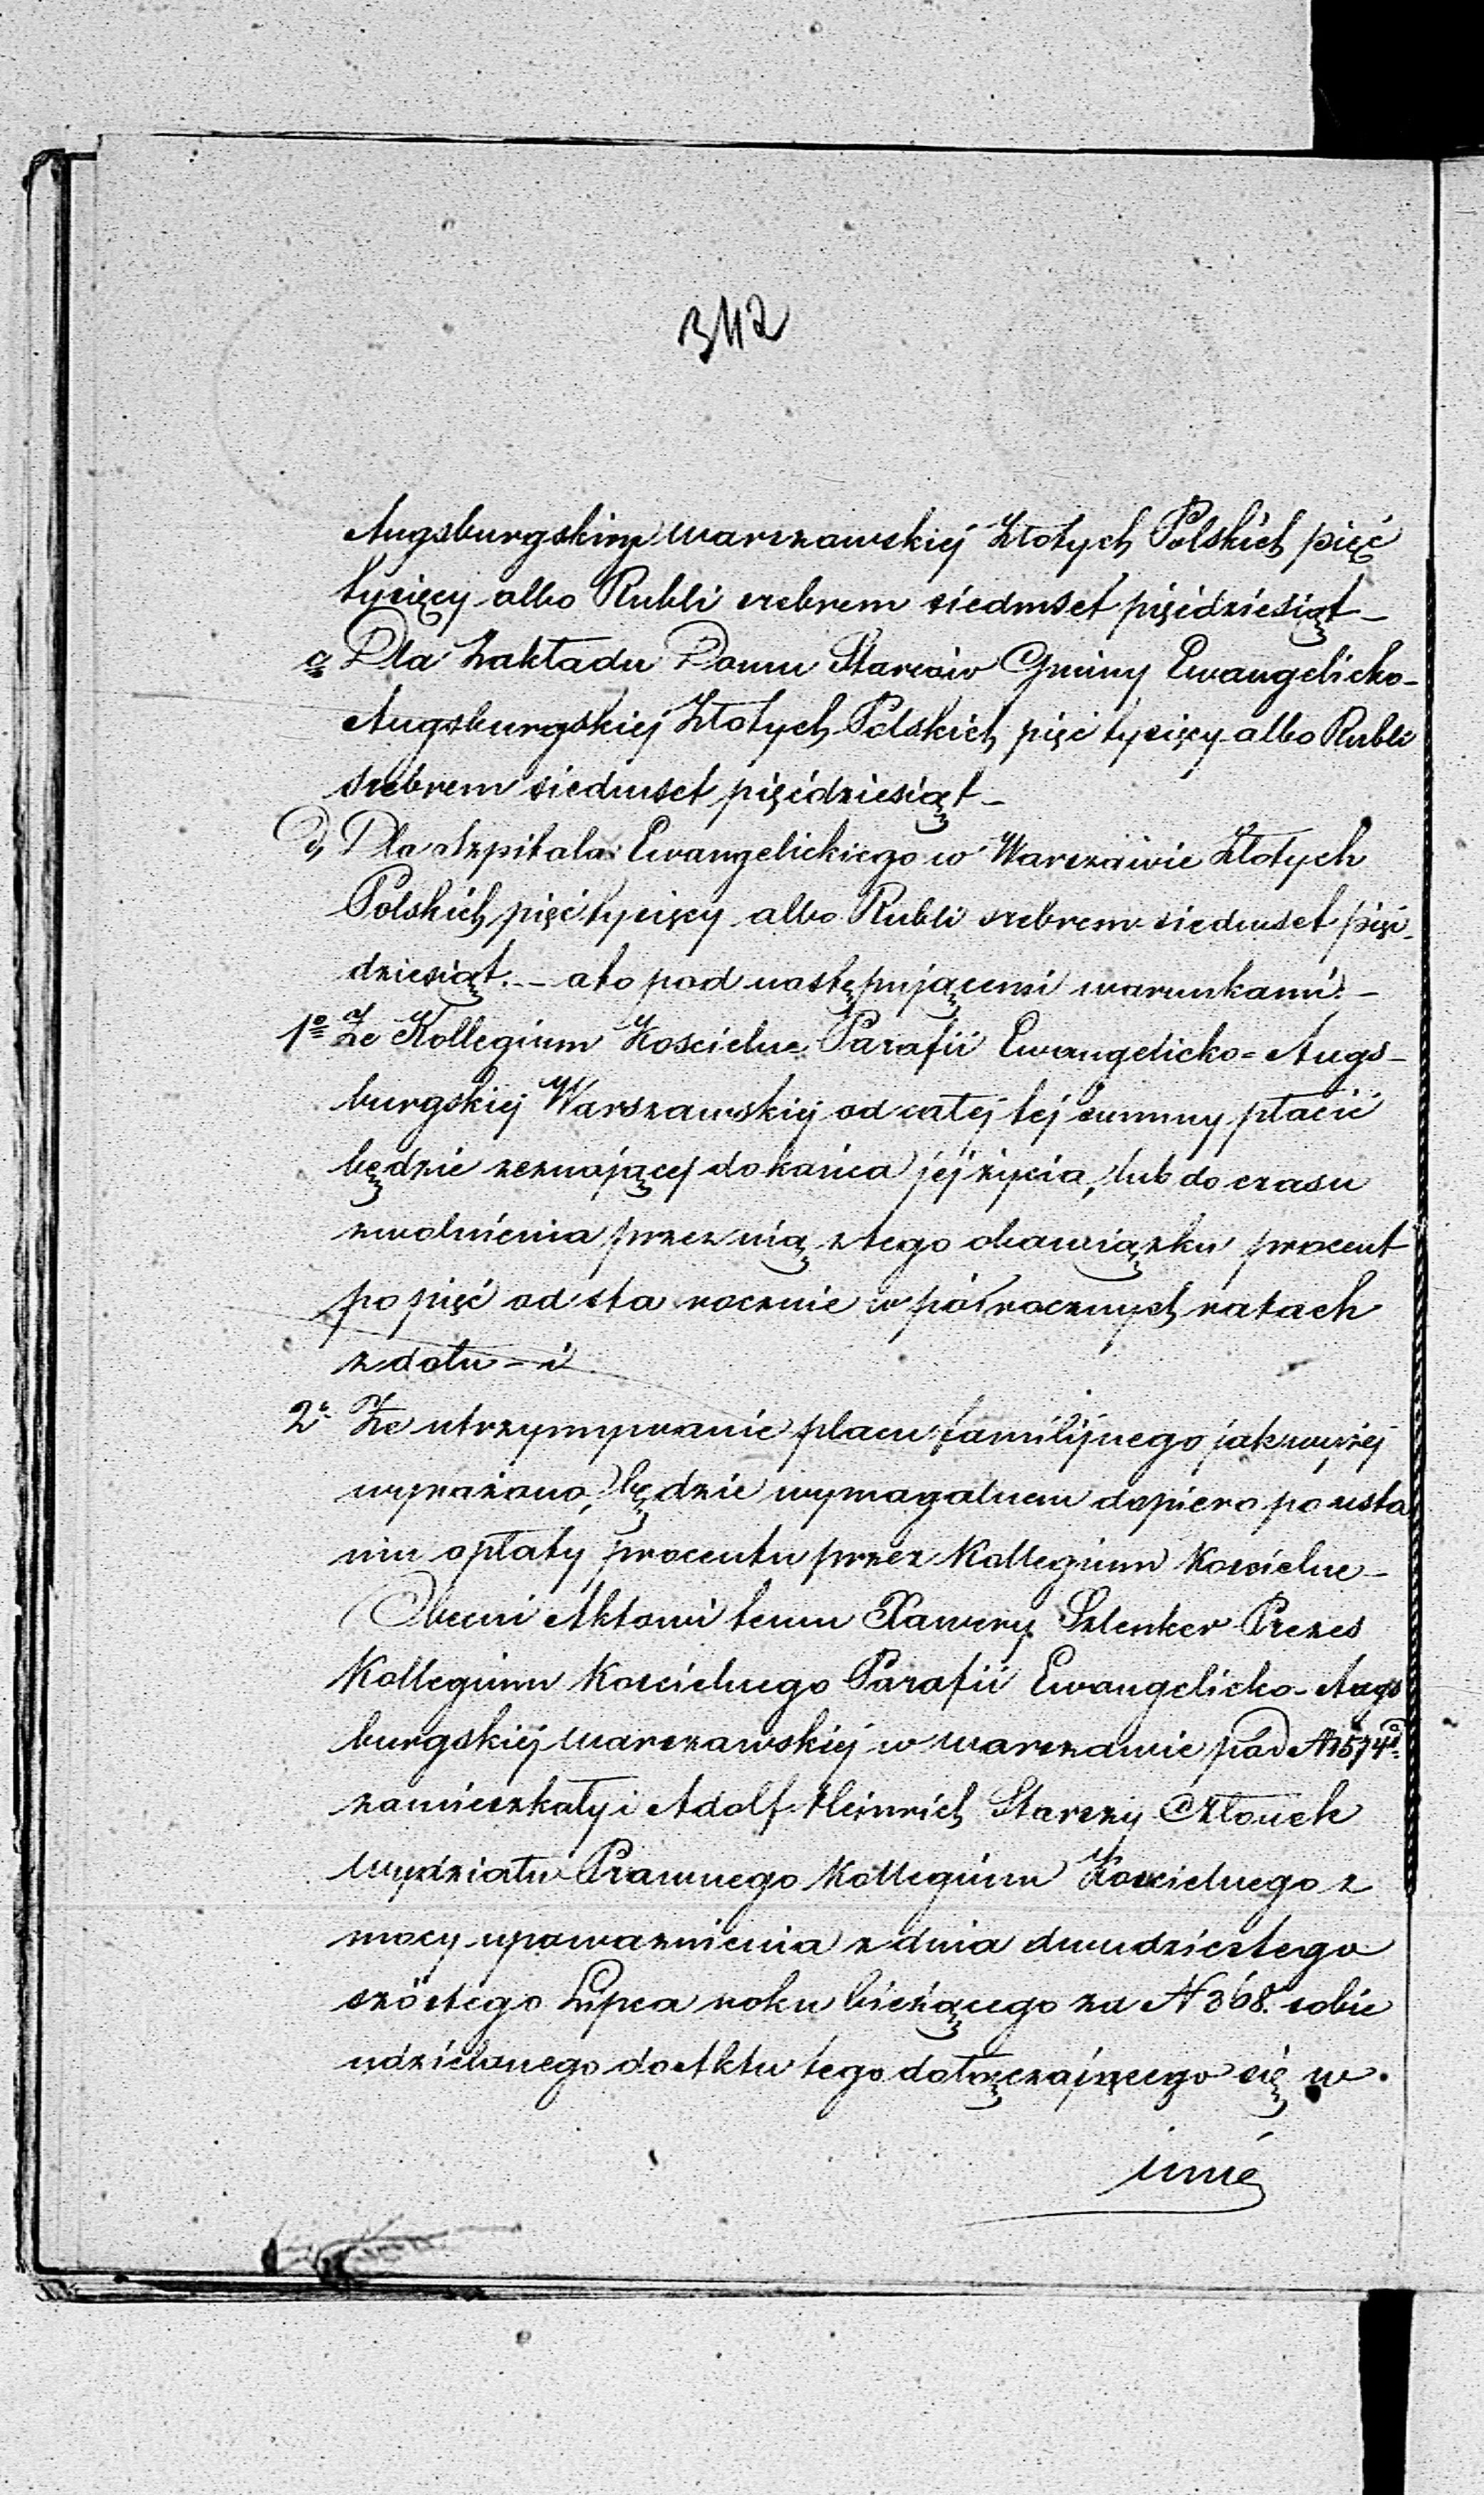 342
Augsburgskiej warszawskiéj Złotych Polskich pięć
tysięcy albo Rubli srebrem siedmset pięćdziesiąt –
c, Dla Zakładu Domu Starców Gminy Ewangelicko-
Augsburgskiej Złotych Polskich pięć tysięcy albo Rubli
srebrem siedmset pięćdziesiąt –
d, Dla szpitala Ewangelickiego w Warszawie Złotych
Polskich pięć tysięcy albo Rubli srebrem siedmset pięć-
dziesiąt. – a to pod następującemi warunkami: –
1º Że Kollegium Kościelne Parafii Ewangelicko-Augs-
burgskiej Warszawskiej od całej tej summy płacić
będzie zeznającej do końca jej życia, lub do czasu
zwolnienia przez nią z tego obowiązku procent
po pięć od sta rocznie w półrocznych ratach
z dołu – i
2º Że utrzymywanie placu familijnego jak wyżej
wyrażono, będzie wymagalnem dopiero po usta
niu opłaty procentu przez Kollegium Kościelne –
Obecni Aktowi temu Xawery Szlenker Prezes
Kollegium Kościelnego Parafii Ewangelicko-Augs
burgskiej warszawskiej w warszawie pod N 1574 d
zamieszkały i Adolf Heinrich Starszy Członek
wydziału Prawnego Kollegium Kościelnego z
mocy upoważnienia z dnia dwudziestego
szóstego Lipca roku bieżącego za N 368. sobie
udzielonego do Aktu tego dołączającego się w.
imie